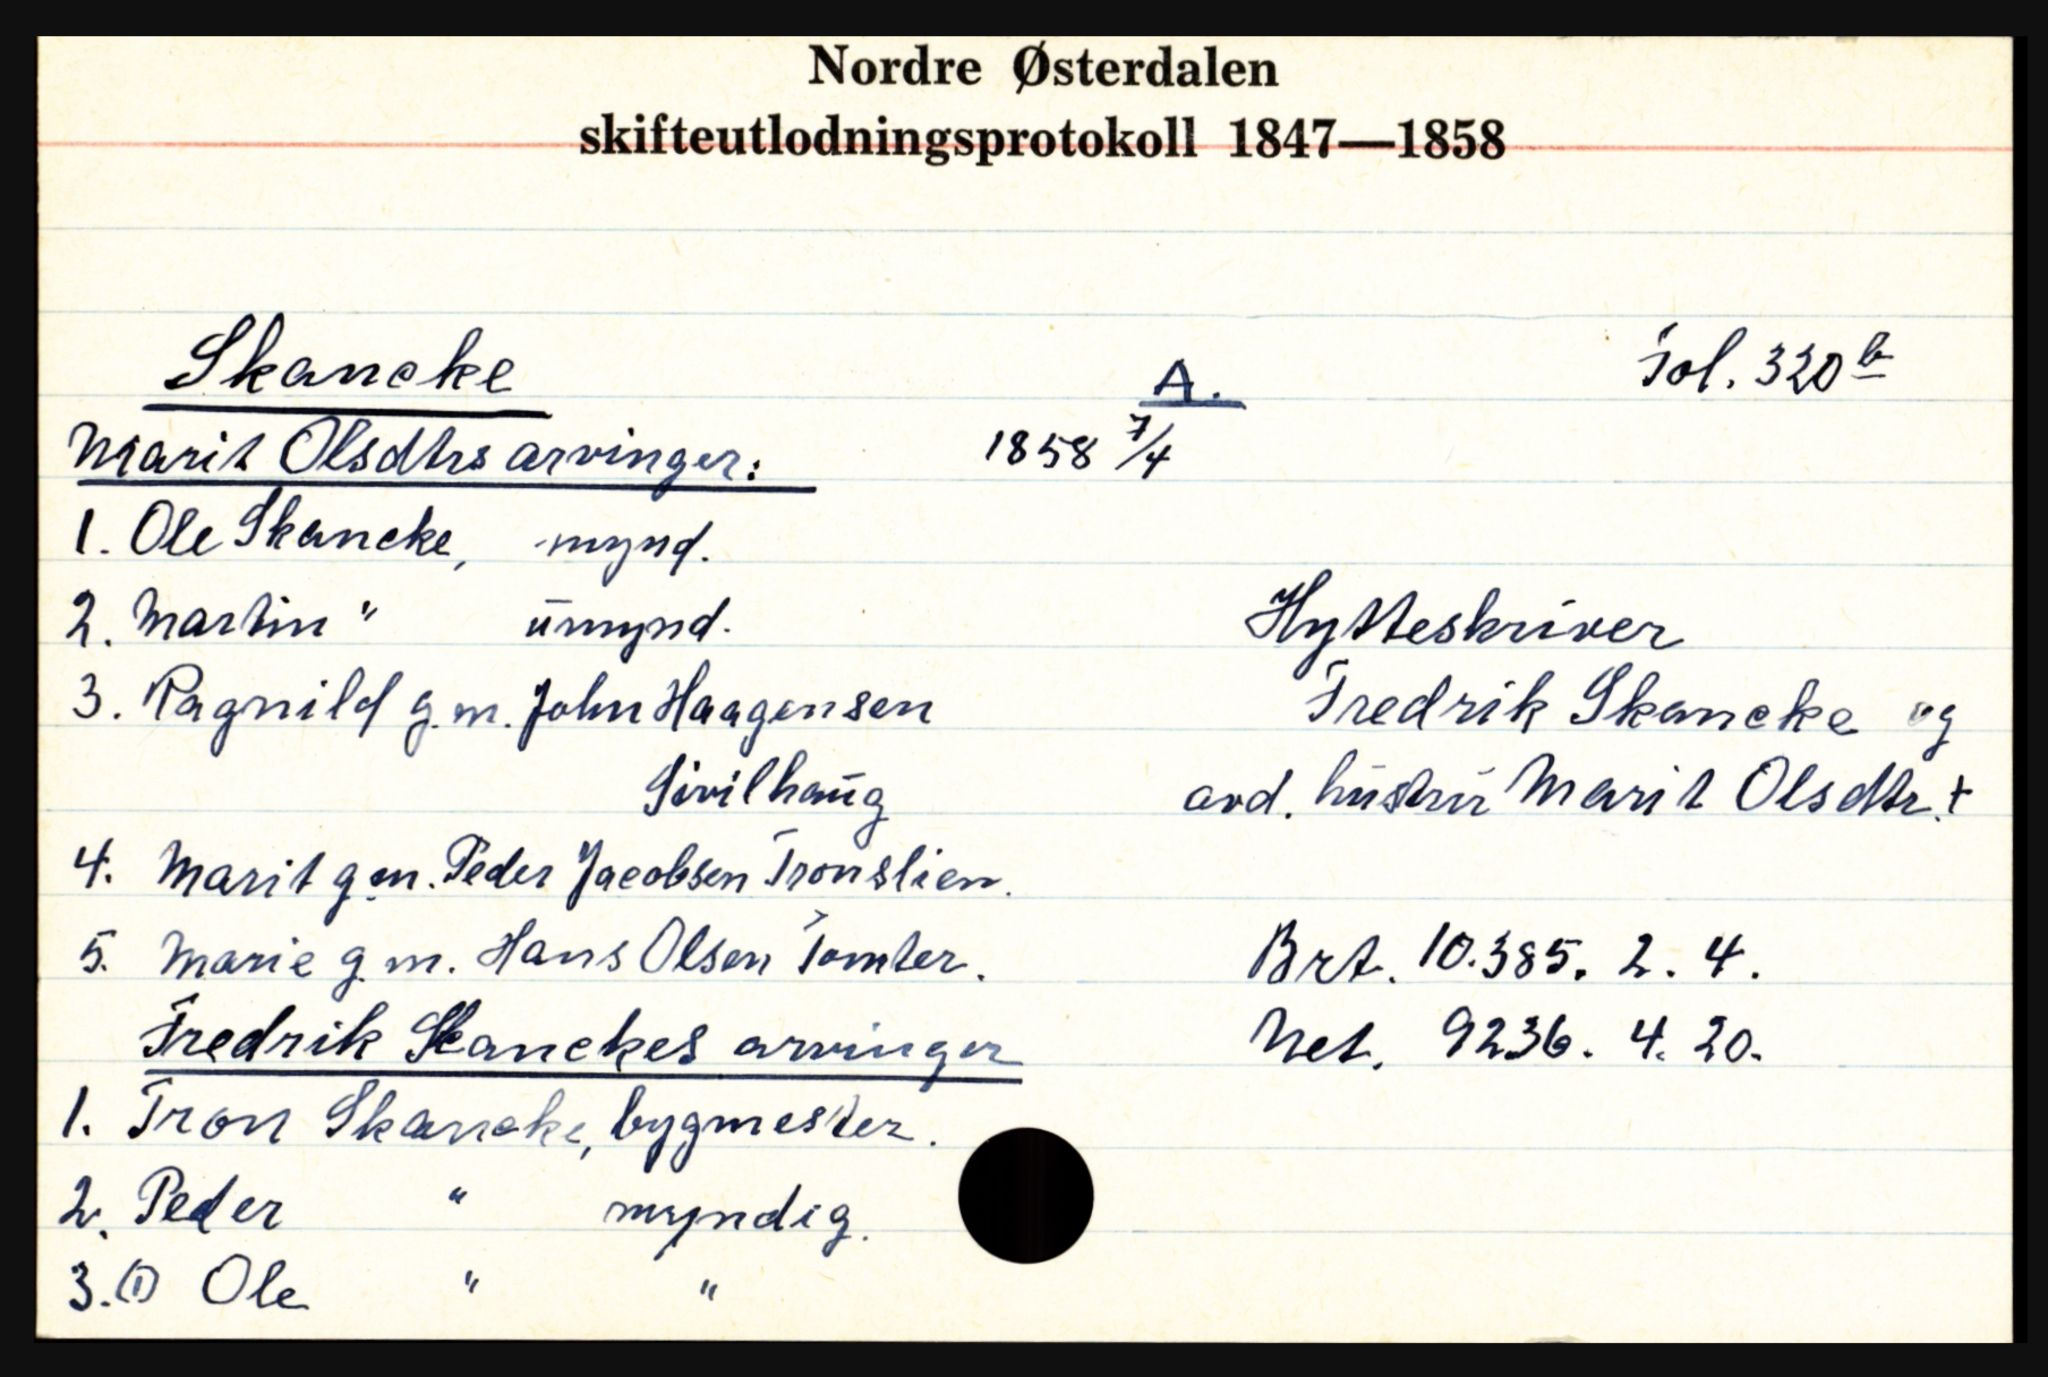 Nordre Østerdalen
skifteutlodningsprotokoll 1847—1858
Skancke
A.
Fol. 320 b
Marit Olsdtrs arvinger:
1858 7/4
1. Ole Skancke, mynd.
2. Martin " umynd.
Hytteskriver
3. Ragnild g.m. John Haagensen
Fredrik Skancke og
Sivilhaug
avd. hustru Marit Olsdtr. +
4. Marit g.m. Peder Jacobsen Tronslien.
5. Marie g.m. Hans Olsen Tomter.
Brt. 10.385. 2. 4.
Fredrik Skanckes arvinger
Net. 9236. 4. 20.
1. Tron Skancke, bygmester.
2. Peder " myndig.
3. (1) Ole " "